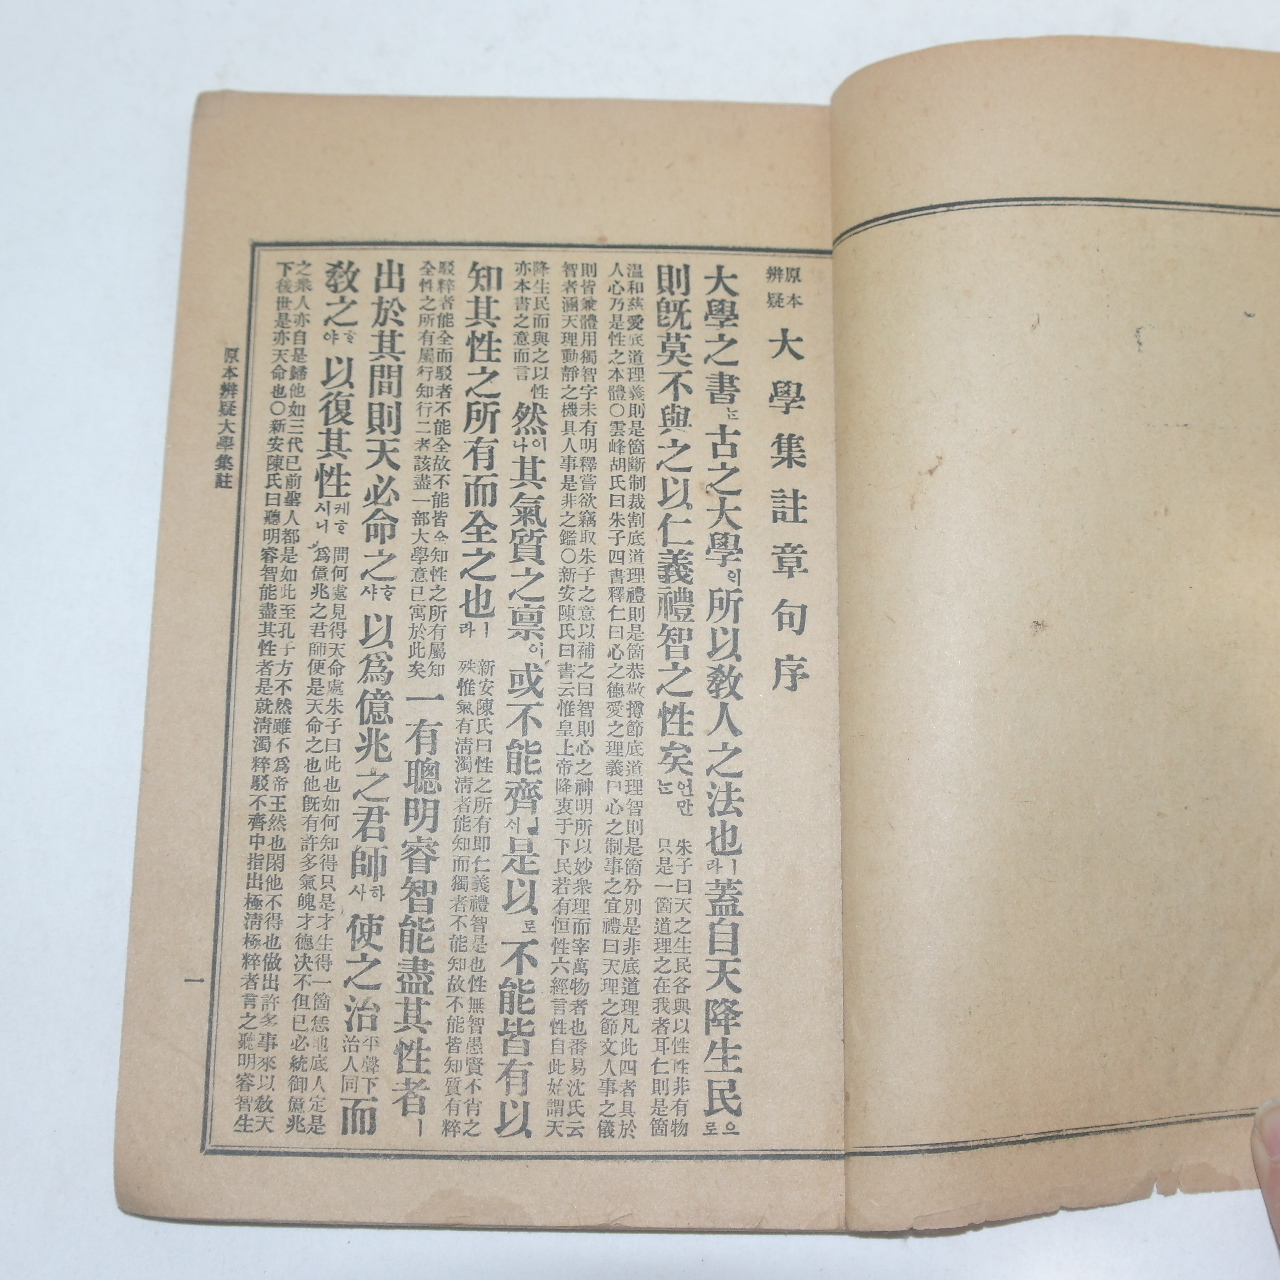 原本
辨疑
大學集註章句序
大學之書는古之大學의所以敎人之法也ㅣ라蓋自天降生民으로
則旣莫不與之以仁義禮智之性矣언만는
朱子曰天之生民各與以性性非有物
只是一箇道理之在我者耳仁則是箇
溫和慈愛底道理義則是箇斷制裁割底道理禮則是箇恭敬撙節底道理智則是箇分別是非底道理凡此四者具於
人心乃是性之本體○雲峰胡氏曰朱子四書釋仁曰心之德愛之理義曰心之制事之宜禮曰天理之節文人事之儀
則皆兼體用獨智字未有明釋嘗欲竊取朱子之意以補之曰智則心之神明所以妙衆理而宰萬物者也番易沈氏云
智者涵天理動靜之機具人事是非之鑑○新安陳氏曰書云惟皇上帝降衷于下民若有恒性六經言性自此始謂天
降生民而與之以性
亦本書之意而言
然이나其氣質之禀이或不能齊ㄹ시是以로不能皆有以
知其性之所有而全之也ㅣ라
新安陳氏曰性之所有即仁義禮智是也性無智愚賢不肖之
殊惟氣有清濁清者能知而獨者不能知故不能皆知質有粹
駁粹者能全而駁者不能全故不能皆全知性之所有屬知
全性之所有屬行知行二者該盡一部大學意已寓於此矣
一有聰明睿智能盡其性者ㅣ
出於其間則天必命之ᄒᆞ샤以爲億兆之君師하사使之治平聲下治人同而
敎之ᄒᆞ야以復其性케ᄒᆞ시니
問何處見得天命處朱子曰此也如何知得只是才生得一箇恁地底人定是
爲億兆之君師便是天命之也他旣有許多氣魄才德決不但已必統御億兆
之衆人亦自是歸他如三代已前聖人都是如此至孔子方不然雖不爲帝王然也閑他不得也做出許多事來以敎天
下後世是亦天命也○新安陳氏曰聰明睿智能盡其性者是就清濁粹駁不齊中指出極清極粹者言之聰明睿智生
原本辨疑大學集註
一